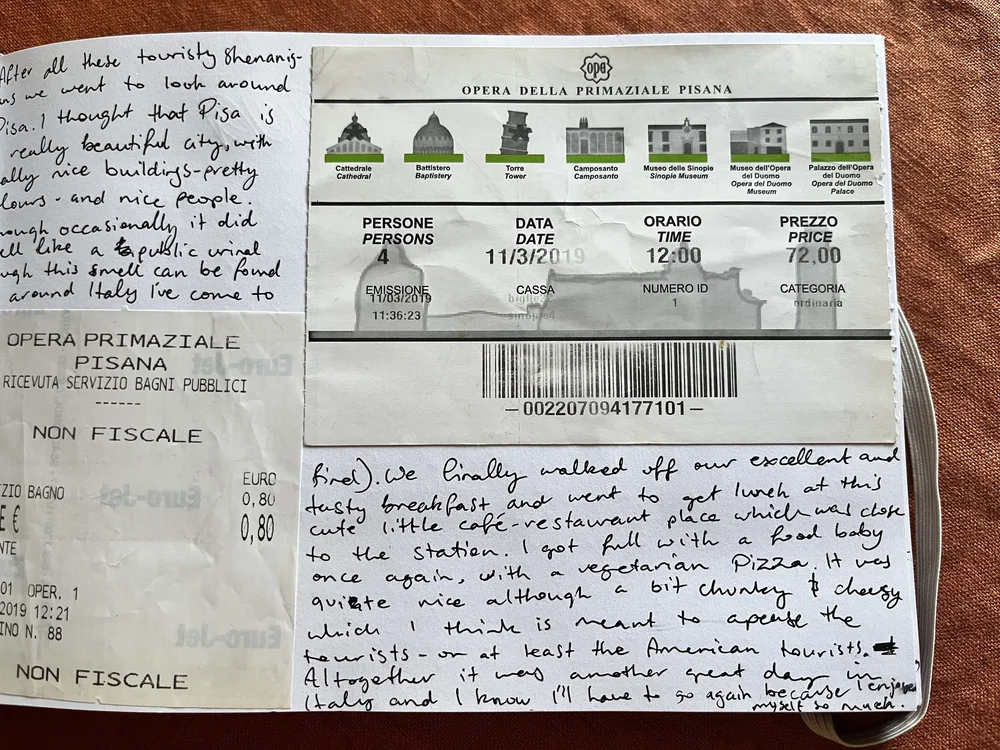 After all these touristy shenanig-
ns we went to look around
Pisa. I thought that Pisa is
really beautiful city, with
ally nice buildings-pretty
lours - and nice people.
hough occasionally it did
ell like a public urinal
ugh this smell can be found
around Italy I've come to
opa
OPERA DELLA PRIMAZIALE PISANA
Cattedrale
Cathedral
Battistero
Baptistery
Torre
Tower
Camposanto
Camposanto
Museo delle Sinopie
Sinopie Museum
Museo dell'Opera
del Duomo
Opera del Duomo
Museum
Palazzo dell'Opera
del Duomo
Opera del Duomo
Palace
PERSONE
PERSONS
4
DATA
DATE
11/3/2019
ORARIO
TIME
12:00
PREZZO
PRICE
72,00
EMISSIONE
11/03/2019
11:36:23
CASSA
NUMERO ID
1
CATEGORIA
ordinaria
–002207094177101–
OPERA PRIMAZIALE
PISANA
RICEVUTA SERVIZIO BAGNI PUBBLICI
------
NON FISCALE
EURO
ZIO BAGNO 0,80
E € 0,80
NTE
01 OPER. 1
2019 12:21
INO N. 88
NON FISCALE
Euro-Jet
Euro-Jet
Euro-Jet
find). We finally walked off our excellent and
tasty breakfast and went to get lunch at this
cute little café-restaurant place which was close
to the station. I got full with a food baby
once again, with a vegetarian Pizza. It was
quite nice although a bit chunky & cheesy
which I think is meant to apease the
tourists - or at least the American tourists.
Altogether it was another great day in
Italy and I know I'll have to go again because I enjoyed
myself so much.